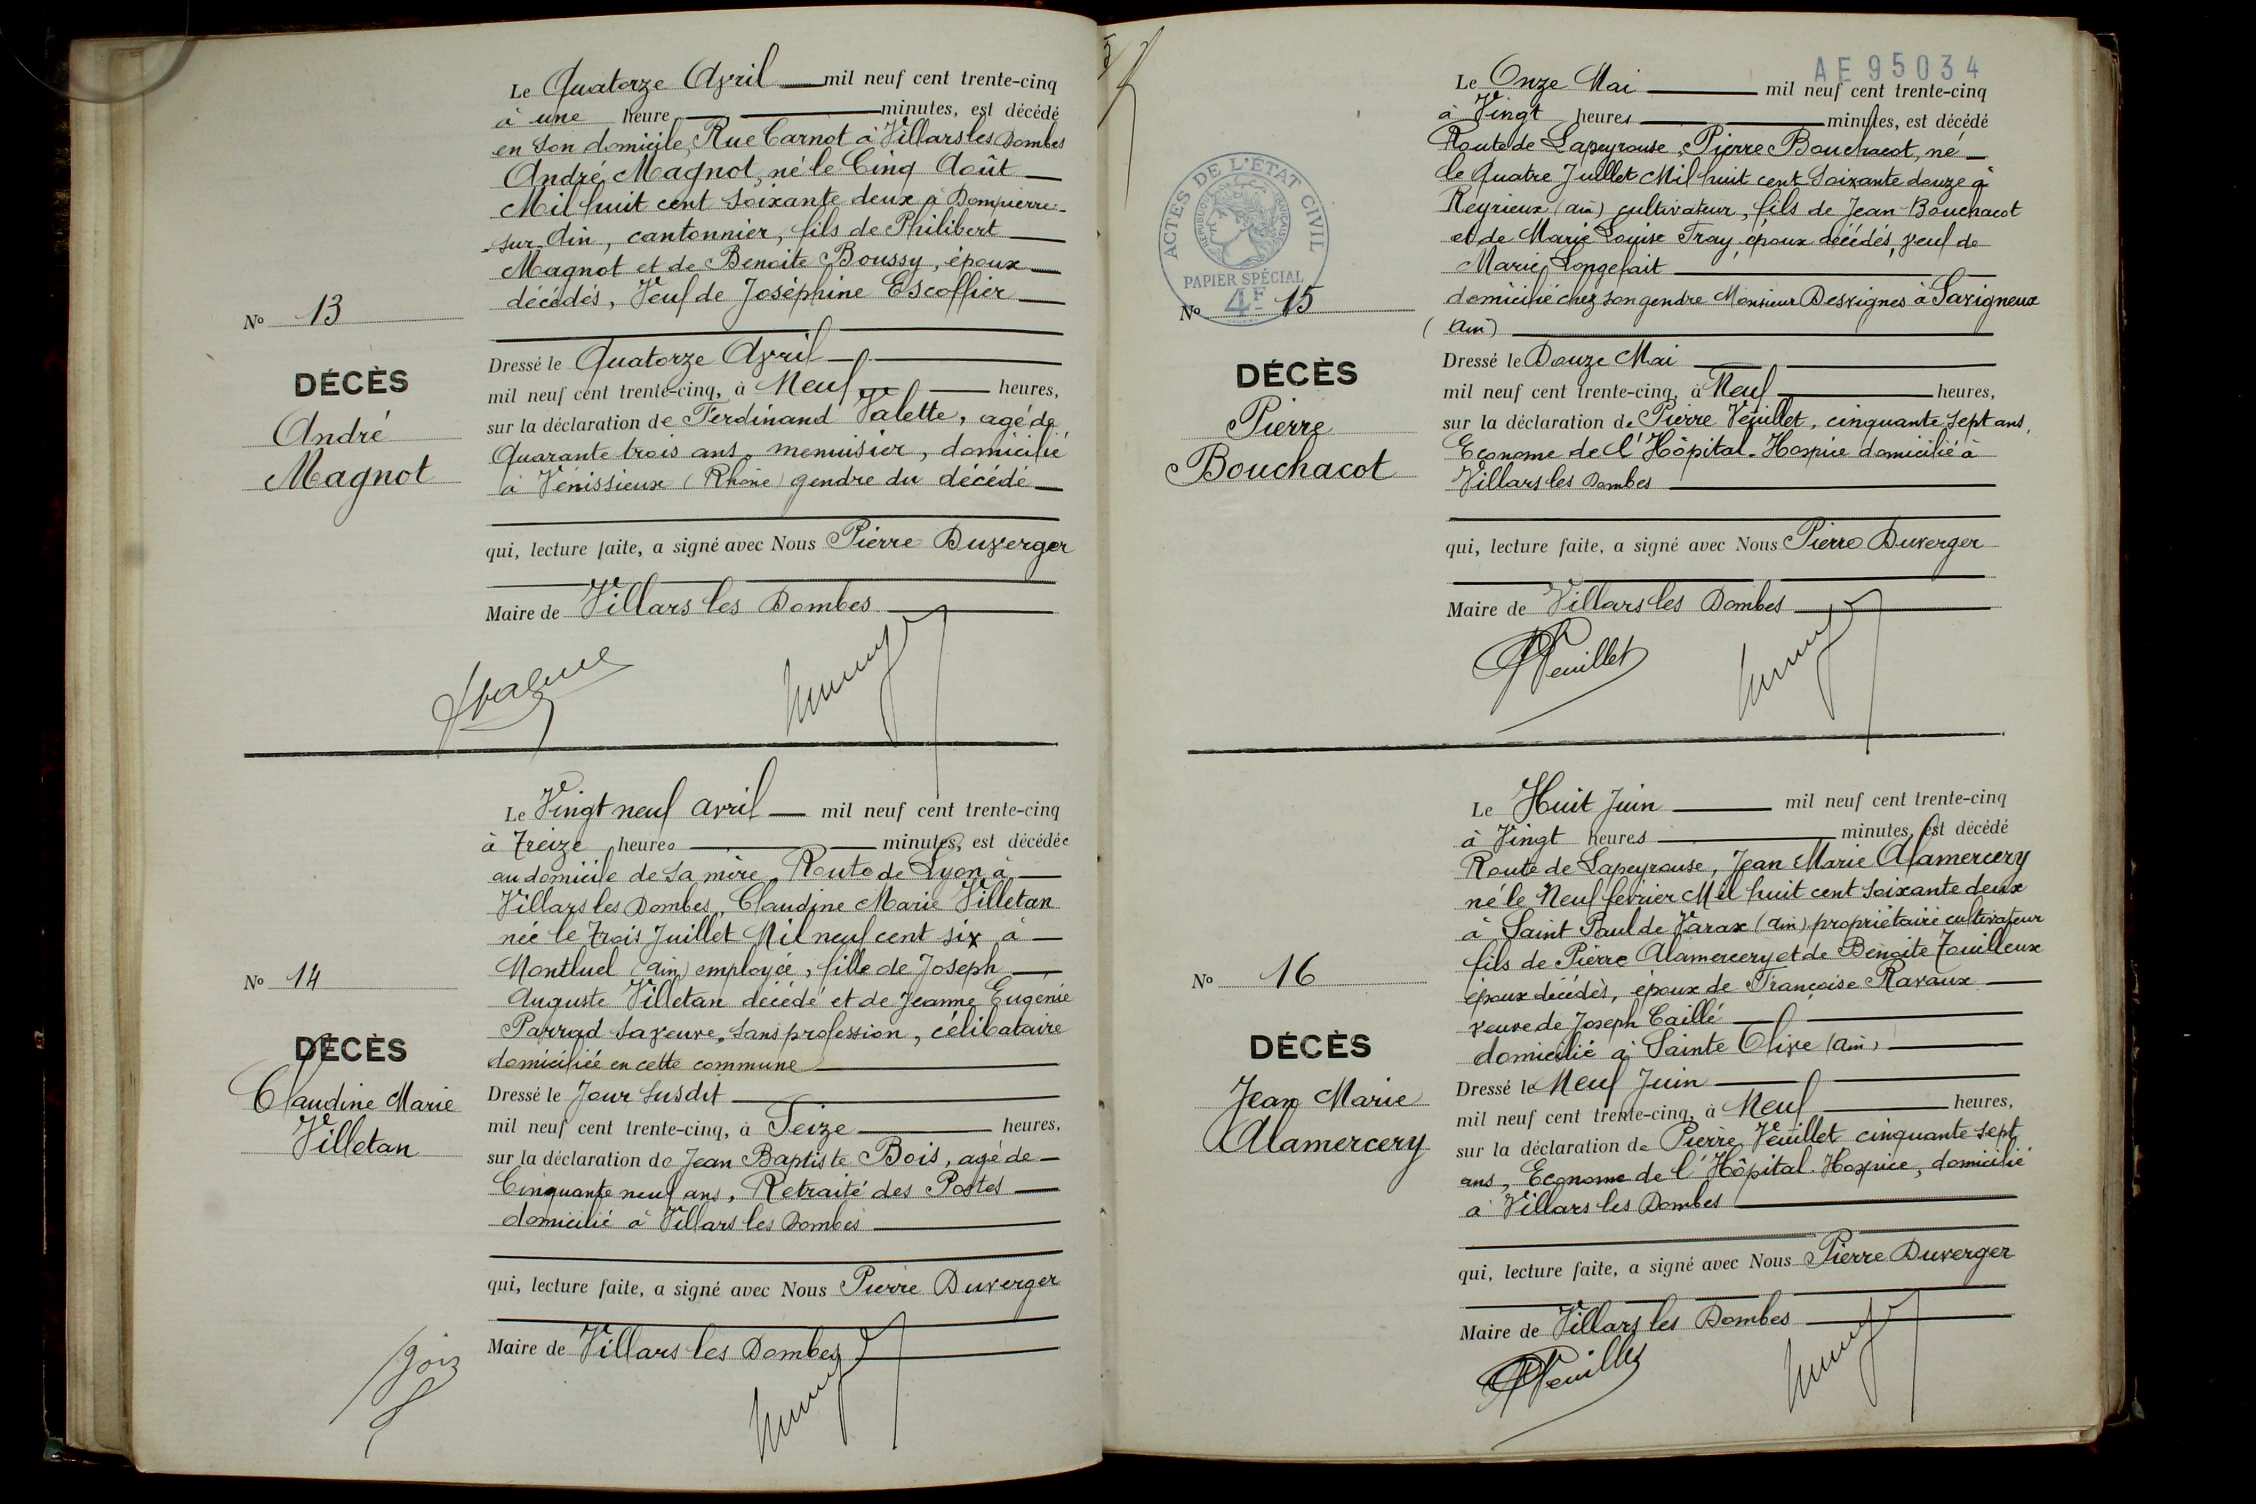 Le Quatorze Avril mil neuf cent trente-cinq
à une heure minutes, est décédé
en son domicile, Rue Carnot à Villars les Dombes
André Magnot, né le Cinq Août
Mil huit cent soixante deux à Dompierre-
sur-Ain, cantonnier, fils de Philibert
Magnot et de Benoite Boussy, époux
décédés, Veuf de Joséphine Escoffier
No 13
DÉCÈS
André
Magnot
Dressé le Quatorze Avril
mil neuf cent trente-cinq, à Neuf heures,
sur la déclaration de Ferdinand Valette, agé de
Quarante trois ans, menuisier, domicilié
à Vénissieux (Rhône) gendre du décédé
qui, lecture faite, a signé avec Nous Pierre Duverger
Maire de Villars les Dombes
Le Vingt neuf avril mil neuf cent trente-cinq
à Treize heures minutes, est décédée
au domicile de sa mère, Route de Lyon à
Villars les Dombes, Claudine Marie Villetan
née le Trois Juillet Mil neuf cent six à
Montluel (Ain) employée, fille de Joseph
Auguste Villetan décédé et de Jeanne Eugenie
Parrad sa veuve, sans profession, célibataire
domiciliée en cette commune
No 14
DÉCÈS
Claudine Marie
Villetan
Dressé le Jour susdit
mil neuf cent trente-cinq, à Seize heures,
sur la déclaration de Jean Baptiste Bois, agé de
Cinquante neuf ans, Retraité des Postes
domicilié à Villars les Dombes
qui, lecture faite, a signé avec Nous Pierre Duverger
Maire de Villars les Dombes
Bois
AE95034
Le Onze Mai mil neuf cent trente-cinq
à Vingt heures minutes, est décédé
Route de Lapeyrouse, Pierre Bouchacot, né
le Quatre Juillet Mil huit cent soixante douze à
Reyrieux (ain) cultivateur, fils de Jean Bouchacot
et de Marie Louise Tray, époux décédés, veuf de
Marie Longefait
domicilié chez son gendre Monsieur Desvignes à Savigneux
(ain)
ACTES DE L'ÉTAT CIVIL
RÉPUBLIQUE FRANÇAISE
PAPIER SPÉCIAL
4F
No 15
DÉCÈS
Pierre
Bouchacot
Dressé le Douze Mai
mil neuf cent trente-cinq, à Neuf heures,
sur la déclaration de Pierre Veuillet, cinquante sept ans,
Econome de l'Hôpital-Hospice domicilié à
Villars les Dombes
qui, lecture faite, a signé avec Nous Pierre Duverger
Maire de Villars les Dombes
PVeuillet
Le Huit Juin mil neuf cent trente-cinq
à Vingt heures minutes, est décédé
Route de Lapeyrouse, Jean Marie Alamercery
né le Neuf février Mil huit cent soixante deux
à Saint Paul de Varax (ain) propriétaire cultivateur
fils de Pierre Alamercery et de Benoite Touilleux
époux décédés, époux de Françoise Ravaux
veuve de Joseph Caillé
domicilié à Sainte Olive (ain)
No 16
DÉCÈS
Jean Marie
Alamercery
Dressé le Neuf Juin
mil neuf cent trente-cinq, à Neuf heures,
sur la déclaration de Pierre Veuillet cinquante sept
ans, Econome de l'Hôpital-Hospice, domicilié
à Villars les Dombes
qui, lecture faite, a signé avec Nous Pierre Duverger
Maire de Villars les Dombes
PVeuillet